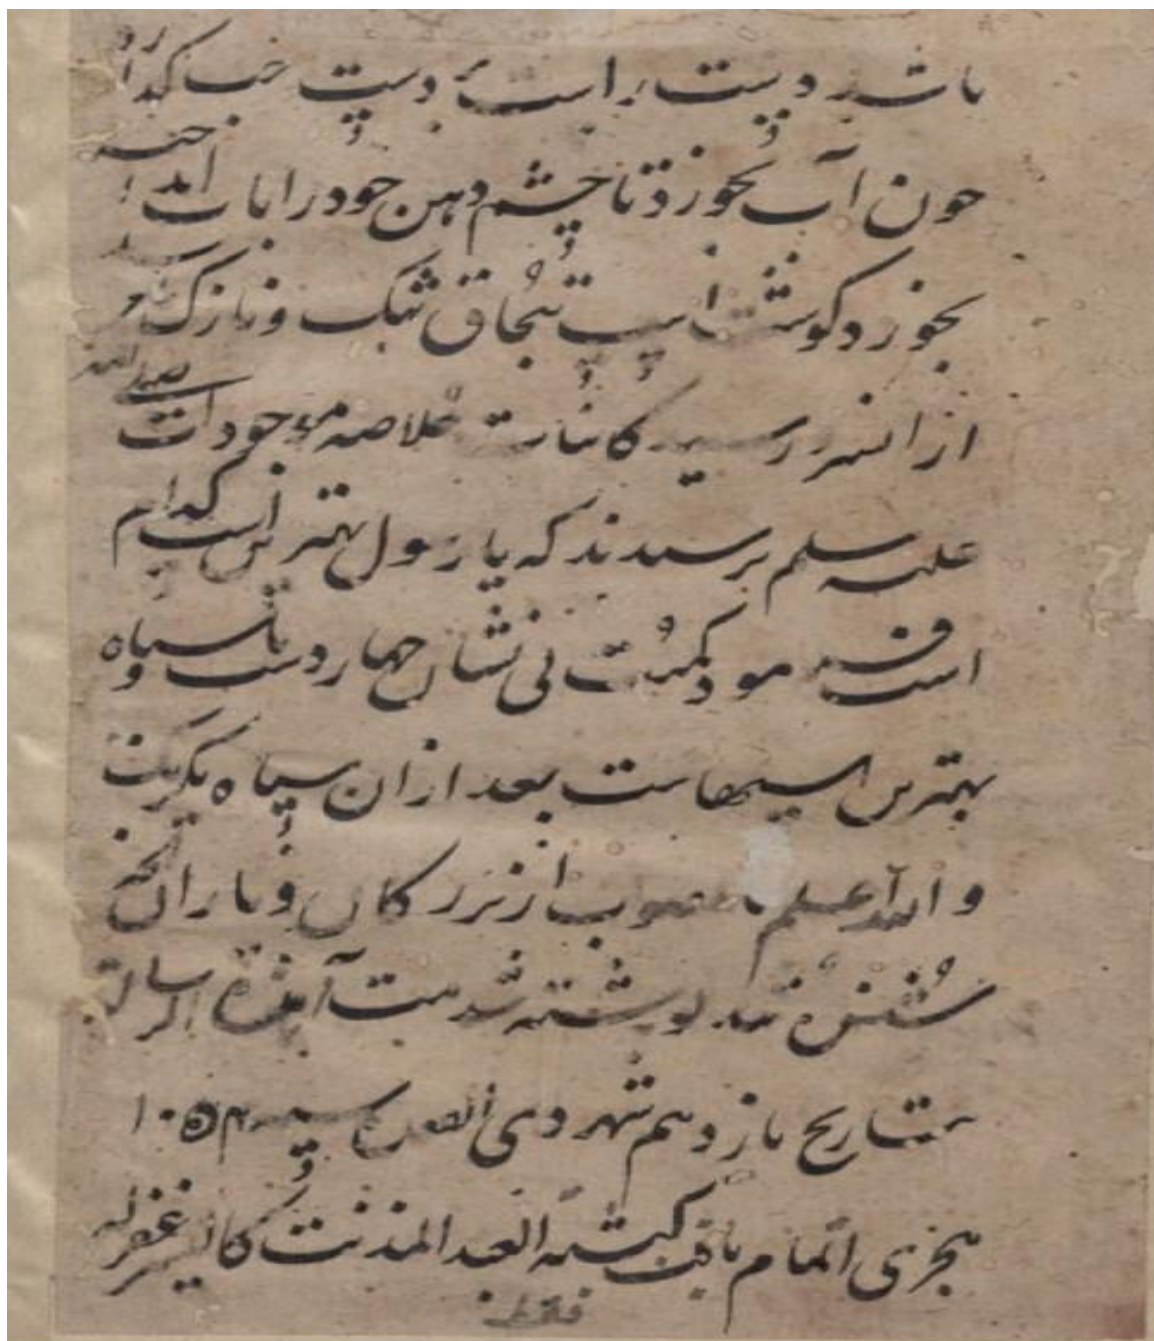 باشد دست راست به دست چپ گذارد
چون آب بخورد تا چشم دهن خود را باب
بخورد گوشت اسپ تبجاق تنک و نازک
از سید کاینات خلاصه موجودات صلی الله
علیه سلم پرسیدند که یا رسول بهترین اسپ کدام
است فرمود کمیت نی نشان چهار دست و پا سیاه
بهترین اسپهاست بعد ازان سیاه یکرنگ
و الله اعلم بالصواب از بزرکان و یاران
نوشته شد تمت الرساله
بتاریخ یازدهم شهر ذی القعده سنه ۱۰۵۴
هجری اتمام یافت کتبه العبد المذنب غفر له
فقط